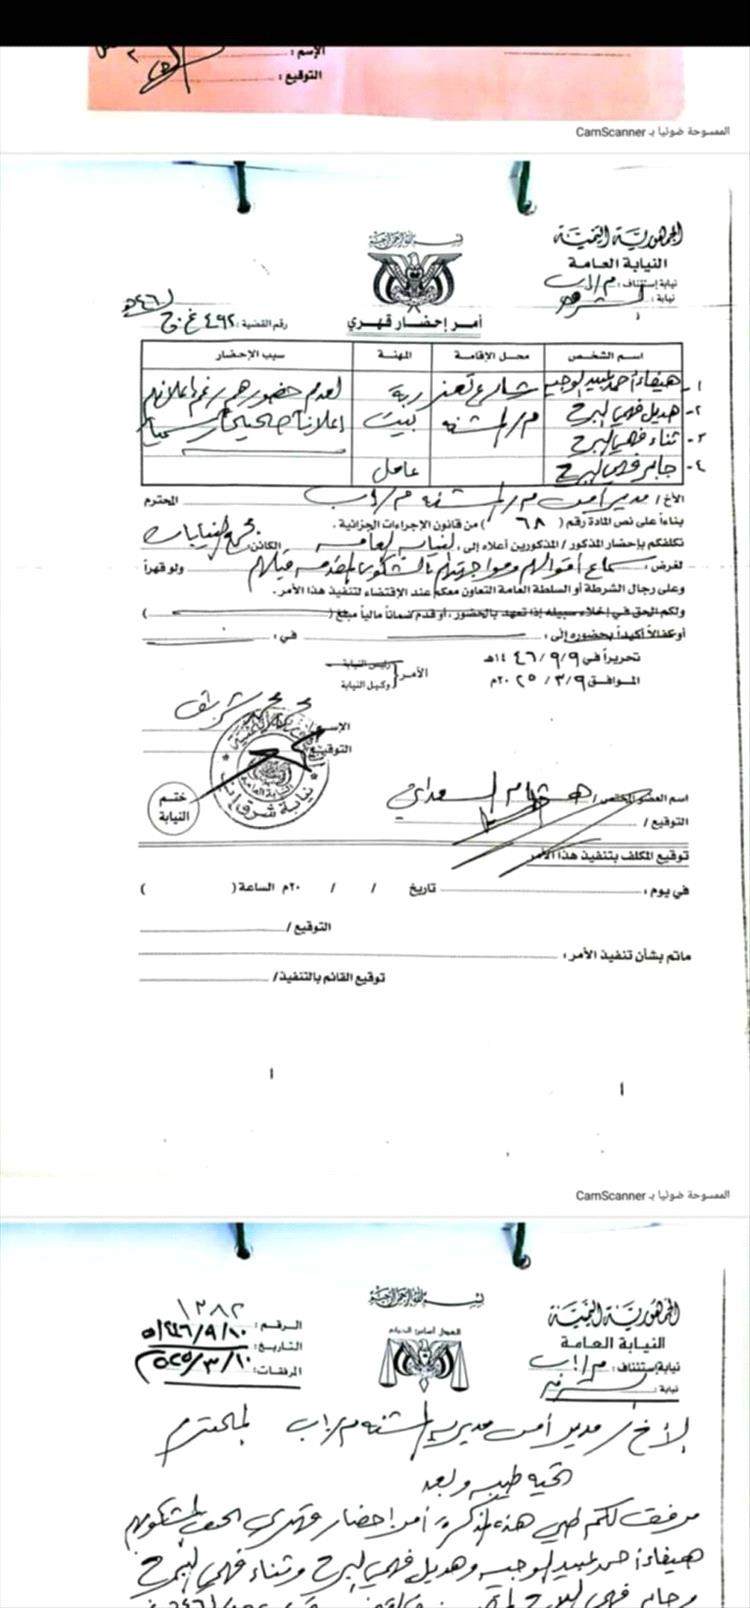 الإسم :
التوقيع :
الممسوحة ضوئيا بـ CamScanner
الجمهورية اليمنية
النيابة العامة
نيابة إستئناف : م/إب
نيابة : شرق
بسم الله الرحمن الرحيم
أمر إحضار قهري
رقم القضية : ٤٩٢ غ.ج
اسم الشخص محل الإقامة المهنة سبب الإحضار
١- هيفاء أحمد عبيد الوجيه شارع تعز ربة لعدم حضورهم رغم اعلانهم
٢- هديل فهمي البرح م/المشنه بيت اعلاناً صحيحاً رسمياً
٣- ثناء فهمي البرح
٤- جابر فهمي البرح عاطل
الأخ / مدير أمن م/المشنه م/إب المحترم
بناءاً على نص المادة رقم ( ٦٨ ) من قانون الإجراءات الجزائية .
نكلفكم بإحضار المذكور / المذكورين أعلاه إلى : النيابة العامة الكائن مجمع النيابات
لغرض : سماع أقوالهم ومواجهتهم بالشكوى المقدمة قبلهم ولو قهراً
وعلى رجال الشرطة أو السلطة العامة التعاون معكم عند الإقتضاء لتنفيذ هذا الأمر .
ولكم الحق في إخلاء سبيله إذا تعهد بالحضور ، أو قدم ضماناً مالياً مبلغ ( )
أو كفالاً أكيداً بحضوره إلى : في :
تحريراً في ٩/٩/١٤٤٦هـ
الموافق ٩/٣/٢٠٢٥م
الأمر { رئيس النيابة
وكيل النيابة
الإسم
التوقيع
ختم
النيابة
اسم العضو المختص / هشام السعدي
التوقيع /
توقيع المكلف بتنفيذ هذا الأمر
في يوم : تاريخ / / ٢٠م الساعة ( )
التوقيع /
ماتم بشأن تنفيذ الأمر :
توقيع القائم بالتنفيذ /
الممسوحة ضوئيا بـ CamScanner
الجمهورية اليمنية
النيابة العامة
نيابة إستئناف : م/إب
نيابة : شرق
بسم الله الرحمن الرحيم
العدل أساس الحكم
الرقم : ١٣٨٢
التاريخ : ١٠/٩/١٤٤٦هـ
المرفقات : ١٠/٣/٢٠٢٥
الأخ / مدير أمن مديرية المشنه م/إب المحترم
تحيه طيبه وبعد
مرفق لكم طي هذه المذكرة أمر إحضار قهري الحق المشكوبهم
هيفاء أحمد عبيد الوجيه وهديل فهمي البرح وثناء فهمي البرح
وجابر فهمي البرح